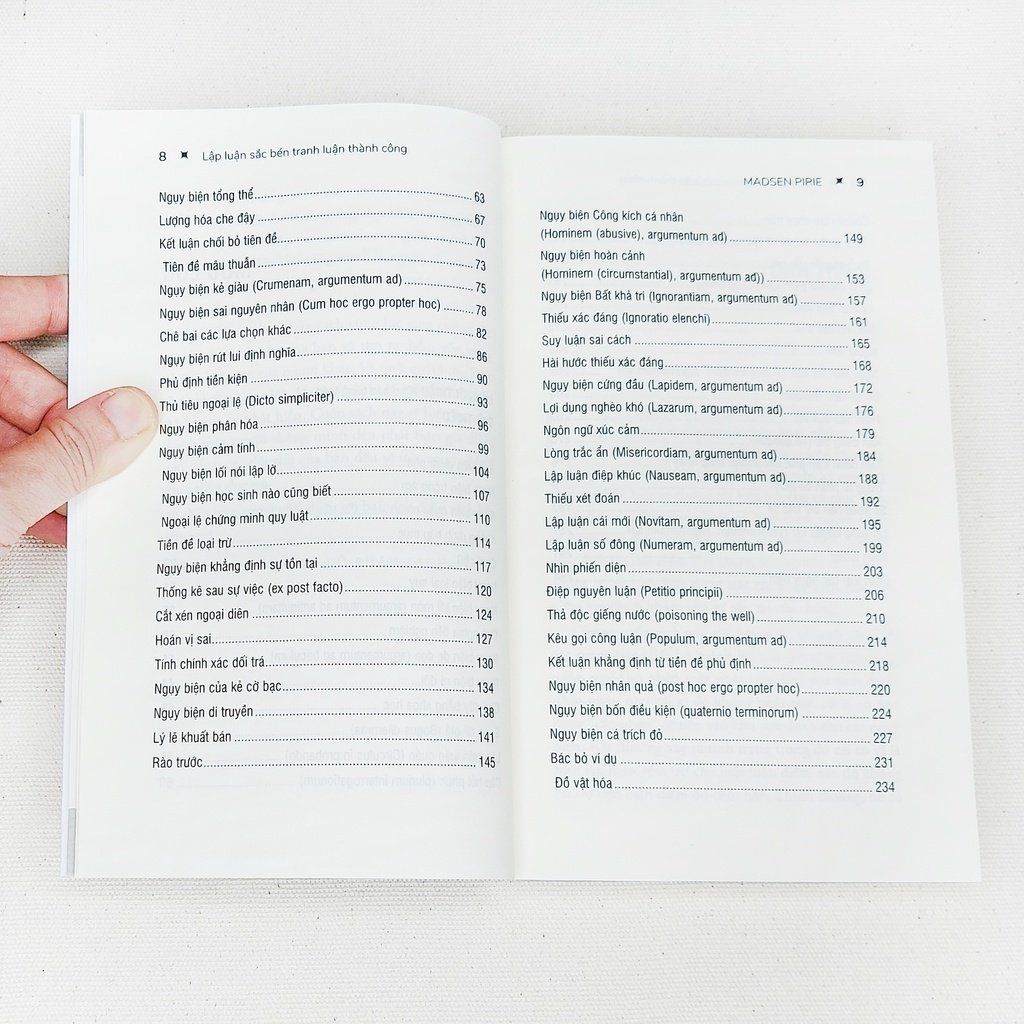 8 ✦ Lập luận sắc bén tranh luận thành công
Ngụy biện tổng thể........ 63
Lượng hóa che đậy........ 67
Kết luận chối bỏ tiên đề........ 70
Tiên đề mâu thuẫn........ 73
Ngụy biện kẻ giàu (Crumenam, argumentum ad)........ 75
Ngụy biện sai nguyên nhân (Cum hoc ergo propter hoc)........ 78
Chê bai các lựa chọn khác........ 82
Ngụy biện rút lui định nghĩa........ 86
Phủ định tiền kiện........ 90
Thủ tiêu ngoại lệ (Dicto simpliciter)........ 93
Ngụy biện phân hóa........ 96
Ngụy biện cảm tính........ 99
Ngụy biện lối nói lập lờ........ 104
Ngụy biện học sinh nào cũng biết........ 107
Ngoại lệ chứng minh quy luật........ 110
Tiền đề loại trừ........ 114
Ngụy biện khẳng định sự tồn tại........ 117
Thống kê sau sự việc (ex post facto)........ 120
Cắt xén ngoại diên........ 124
Hoán vị sai........ 127
Tính chính xác dối trá........ 130
Ngụy biện của kẻ cờ bạc........ 134
Ngụy biện di truyền........ 138
Lý lẽ khuất bán........ 141
Rào trước........ 145
MADSEN PIRIE ✦ 9
Ngụy biện Công kích cá nhân
(Hominem (abusive), argumentum ad)........ 149
Ngụy biện hoàn cảnh
(Hominem (circumstantial), argumentum ad))........ 153
Ngụy biện Bất khả tri (Ignorantiam, argumentum ad)........ 157
Thiếu xác đáng (Ignoratio elenchi)........ 161
Suy luận sai cách........ 165
Hài hước thiếu xác đáng........ 168
Ngụy biện cứng đầu (Lapidem, argumentum ad)........ 172
Lợi dụng nghèo khó (Lazarum, argumentum ad)........ 176
Ngôn ngữ xúc cảm........ 179
Lòng trắc ẩn (Misericordiam, argumentum ad)........ 184
Lập luận điệp khúc (Nauseam, argumentum ad)........ 188
Thiếu xét đoán........ 192
Lập luận cái mới (Novitam, argumentum ad)........ 195
Lập luận số đông (Numeram, argumentum ad)........ 199
Nhìn phiến diện........ 203
Điệp nguyên luận (Petitio principii)........ 206
Thả độc giếng nước (poisoning the well)........ 210
Kêu gọi công luận (Populum, argumentum ad)........ 214
Kết luận khẳng định từ tiền đề phủ định........ 218
Ngụy biện nhân quả (post hoc ergo propter hoc)........ 220
Ngụy biện bốn điều kiện (quaternio terminorum)........ 224
Ngụy biện cá trích đỏ........ 227
Bác bỏ ví dụ........ 231
Đồ vật hóa........ 234